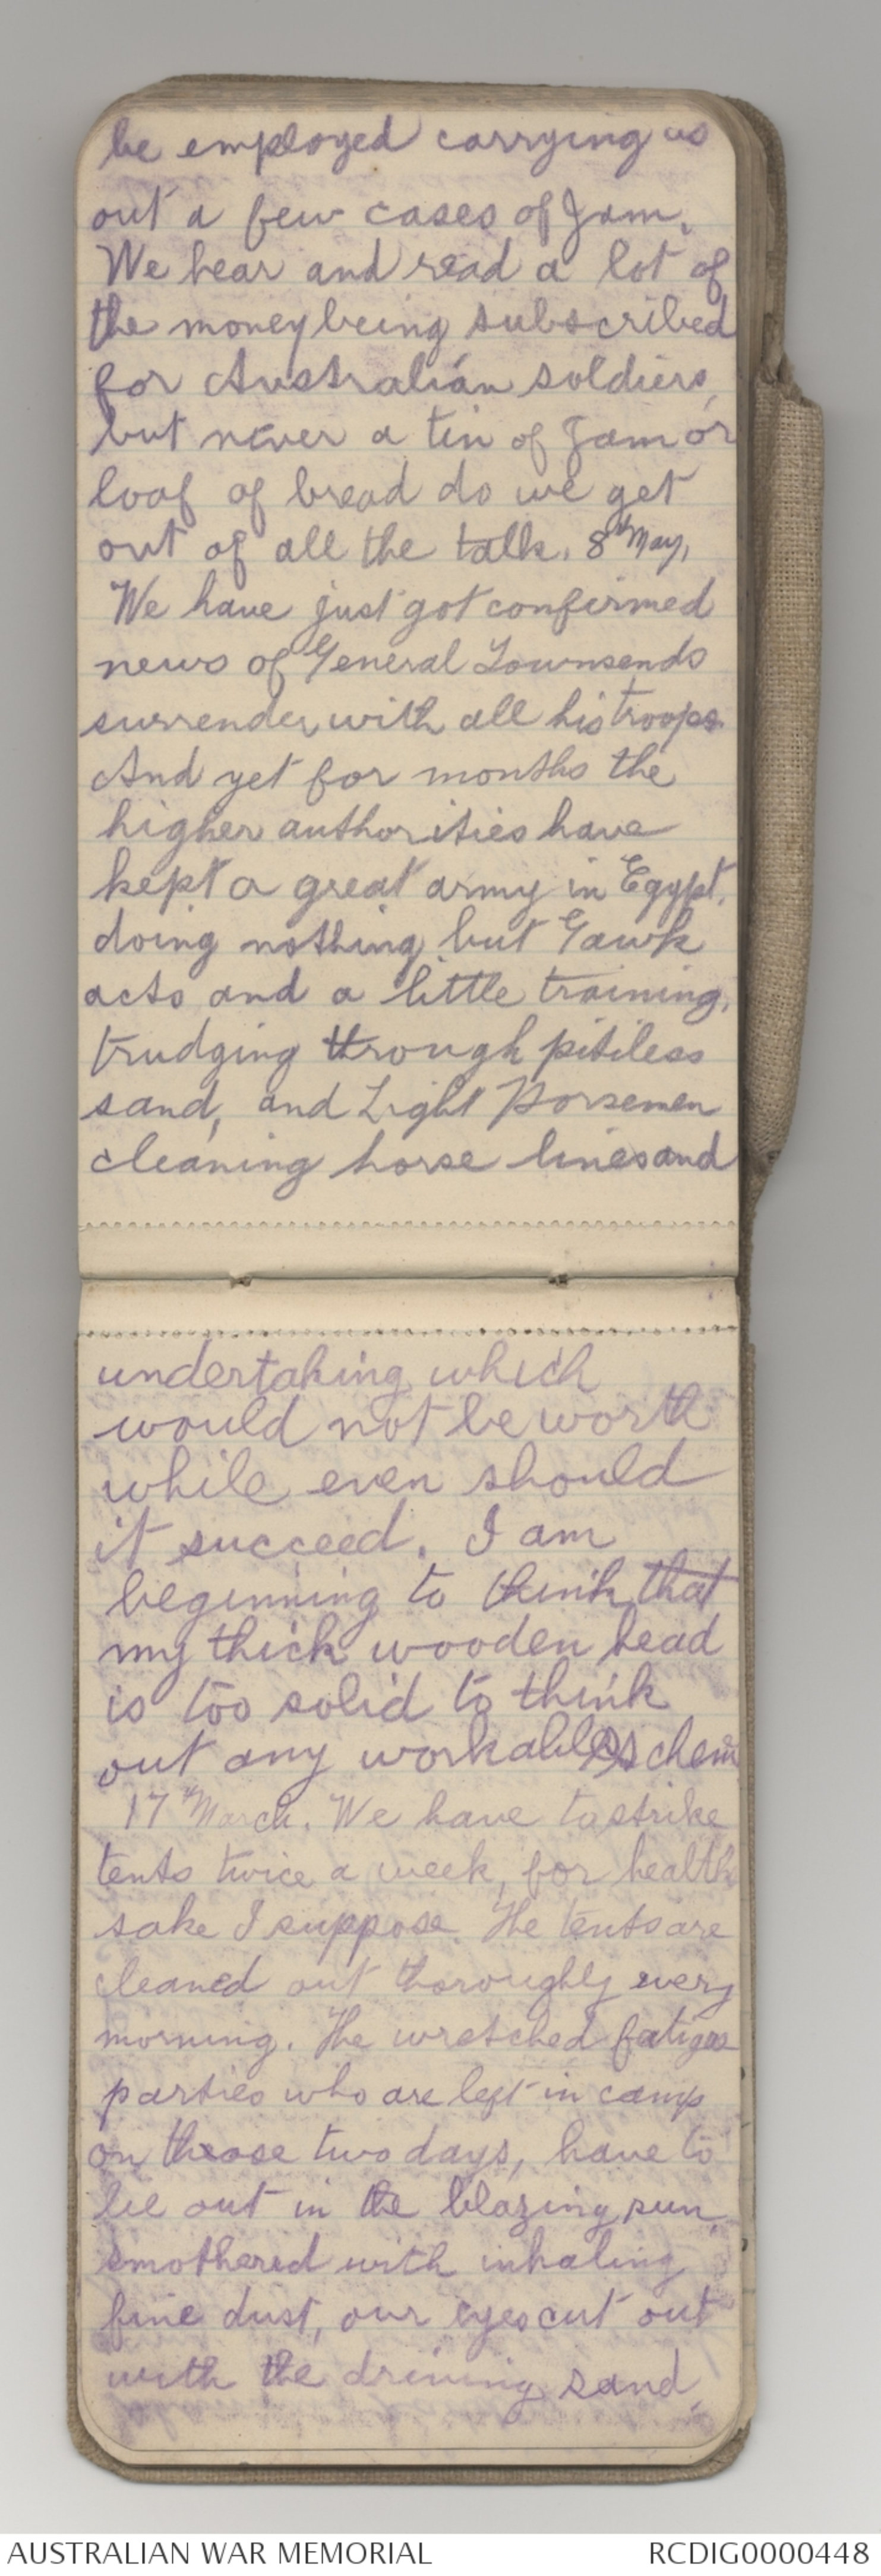 be employed carrying us
out a few cases of Jam.
We hear and read a lot of
the money being subscribed
for Australian soldiers,
but never a tin of Jam or
loaf of bread do we get
out of all the talk. 8th May,
We have just got confirmed
news of General Townsends
surrender with all his troops.
And yet for months the
higher authorities have
kept a great army in Egypt,
doing nothing but Gawk
acts and a little training,
trudging through pitiless
sand, and Light Horsemen
cleaning horse lines and
undertaking which
would not be worth
while even should
it succeed. I am
beginning to think that
my thick wooden head
is too solid to think
out any workable schem
17th March. We have to strike
tents twice a week, for health
sake I suppose. The tents are
cleaned out thoroughly every
morning. The wretched fatigue
parties who are left in camp
on those two days, have to
lie out in the blazing sun,
smothered with inhaling
fine dust, our eyes cut out
with the driving sand,
AUSTRALIAN WAR MEMORIAL
RCDIG0000448